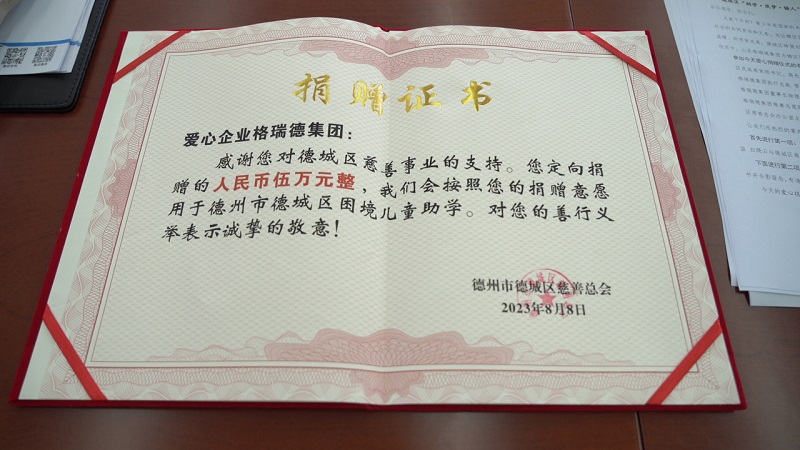 捐赠证书
爱心企业格瑞德集团：
感谢您对德城区慈善事业的支持。您定向捐
赠的人民币伍万元整，我们会按照您的捐赠意愿
用于德州市德城区困境儿童助学。对您的善行义
举表示诚挚的敬意！
德州市德城区慈善总会
2023年8月8日
首先进行第一项：
下面进行第二项